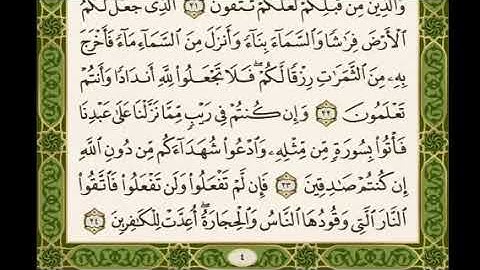 وَالَّذِينَ مِن قَبْلِكُمْ لَعَلَّكُمْ تَتَّقُونَ ٢١ الَّذِى جَعَلَ لَكُمُ
الْأَرْضَ فِرَٰشًا وَالسَّمَآءَ بِنَآءً وَأَنزَلَ مِنَ السَّمَآءِ مَآءً فَأَخْرَجَ
بِهِۦ مِنَ الثَّمَرَٰتِ رِزْقًا لَّكُمْ ۖ فَلَا تَجْعَلُوا۟ لِلَّهِ أَندَادًا وَأَنتُمْ
تَعْلَمُونَ ٢٢ وَإِن كُنتُمْ فِى رَيْبٍ مِّمَّا نَزَّلْنَا عَلَىٰ عَبْدِنَا
فَأْتُوا۟ بِسُورَةٍ مِّن مِّثْلِهِۦ وَادْعُوا۟ شُهَدَآءَكُم مِّن دُونِ اللَّهِ
إِن كُنتُمْ صَٰدِقِينَ ٢٣ فَإِن لَّمْ تَفْعَلُوا۟ وَلَن تَفْعَلُوا۟ فَاتَّقُوا۟
النَّارَ الَّتِى وَقُودُهَا النَّاسُ وَالْحِجَارَةُ ۖ أُعِدَّتْ لِلْكَٰفِرِينَ ٢٤
٤